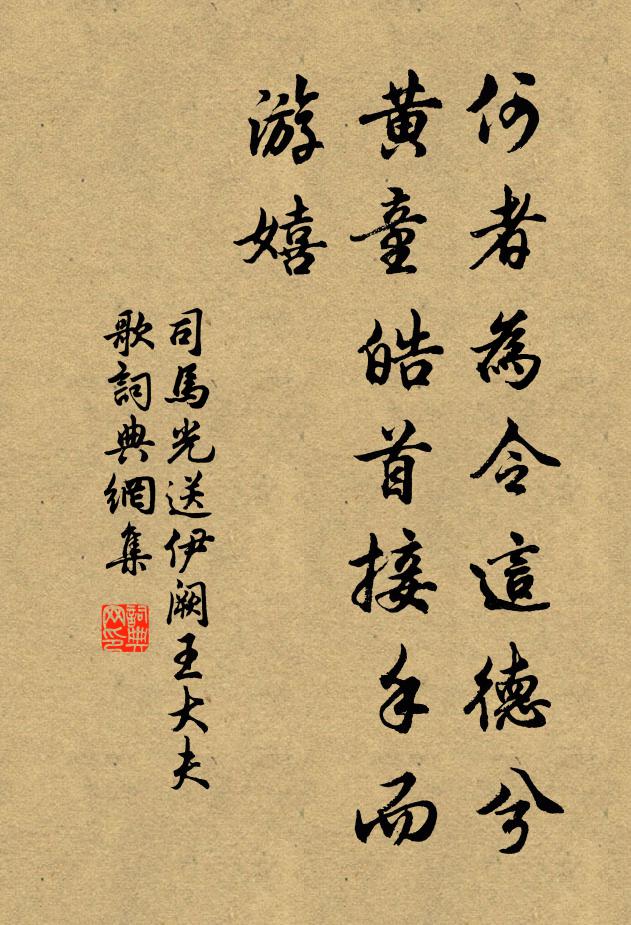 何者為令這德兮
黃童皓首接手而
游嬉
司馬光送伊闕王大夫
歌詞典網集
詞典网印